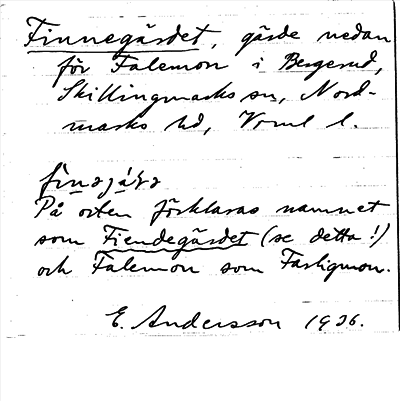 Finnegärdet, gärde nedan
för Falemon i Bergerud,
Skillingmarks sn, Nord-
marks hd, Vrml l.
finajáɽa
På orten förklaras namnet
som Fiendegärdet (se detta!)
och Falemon som Farligmon.
E. Andersson 1936.